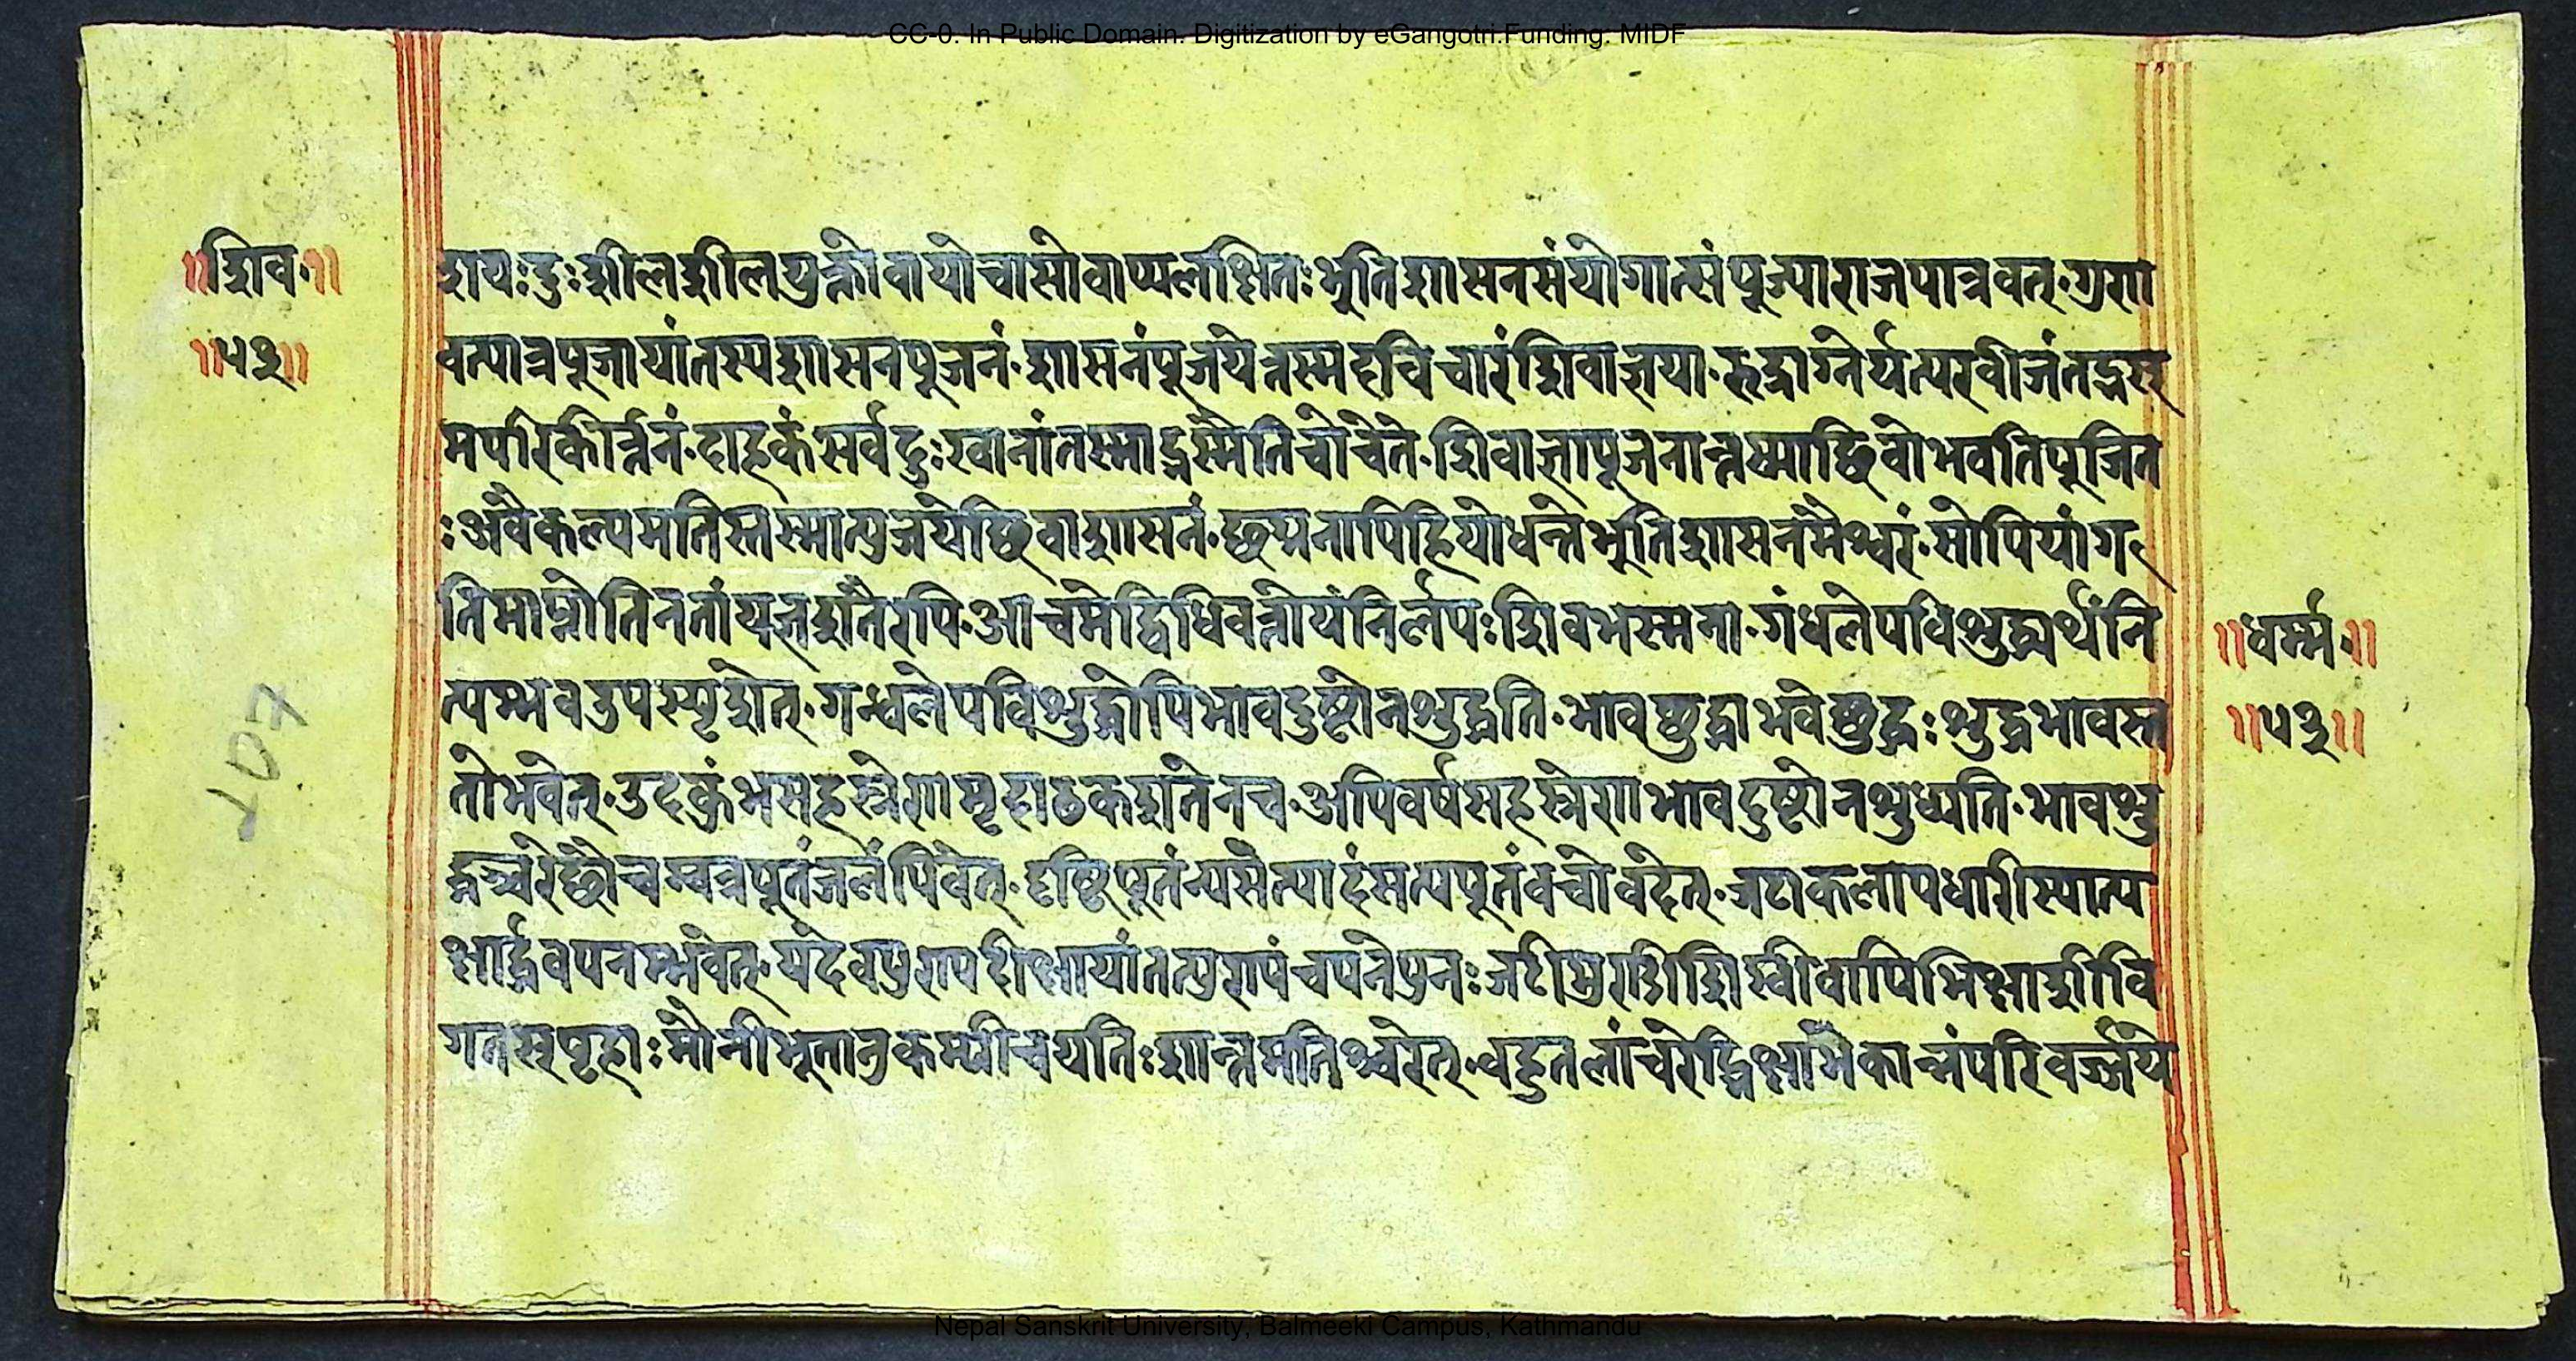 CC-0. In Public Domain. Digitization by eGangotri.Funding: MIDF
॥शिव·॥
॥५३॥
शयः दुःशीलशीलयुक्तोवायोवासोवाप्यलक्षितः भूतिशासनसंयोगात्संपूज्याराजपात्रवत्·गुरा
वत्पात्रपूजायांतस्यशासनपूजनं·शासनंपूजयेत्तस्मदविचारंशिवाज्ञया·रुद्राग्नेर्यत्परवीजंतद्भस्
मपरिकीर्त्तनं·दाहकंसर्वदुःखानांतस्माद्भस्मेतिचोचेते·शिवाज्ञापूजनात्तस्माच्छिवोभवतिपूजित
ः अवैकल्पमतिस्तस्मात्पुजयेच्छिवाशासनं·छद्मनापिहियोधत्तेभूतिशासनमैश्वरं·सोपियांग
तिमाप्नोतिनतांयज्ञशतैरपि·आचमेद्विधिवत्तोयंनिर्लेपःशिवभस्मना·गंधलेपविशुद्ध्यर्थंनि
त्यमवउपस्पृशेत्·गन्धलेपविशुद्धोपिभावदुष्टोनशुद्धति·भावछुद्धाभवेछुद्धःशुद्धभावस्त
तोभवेत्·उदकुंभसहस्रेणमृदाढकशतेनच·अपिवर्षसहस्रेणभावदुष्टोनशुध्यति·भावशु
द्धश्चरेछौचम्वस्त्रपूतंजलंपिवेत्·दृष्टिपूतंन्यसेत्पादंसत्यपूतंवचोवदेत्·जटाकलापधारीस्यात्प
क्षार्द्धवपनम्भवेत्·यदेवपुण्यदीक्षायांतत्पुण्यंचपनेपुनः जटीमुण्डीशिखीवापिभिक्षाशीवि
गतस्पृहाः मौनीभूतानुकम्पीचयतिःशान्तमतिश्चरेत्·वहुतलांचरेद्भिक्षामेकान्नंपरिवर्ज्जये
॥धर्म्म·॥
॥५३॥
107
Nepal Sanskrit University, Balmeeki Campus, Kathmandu